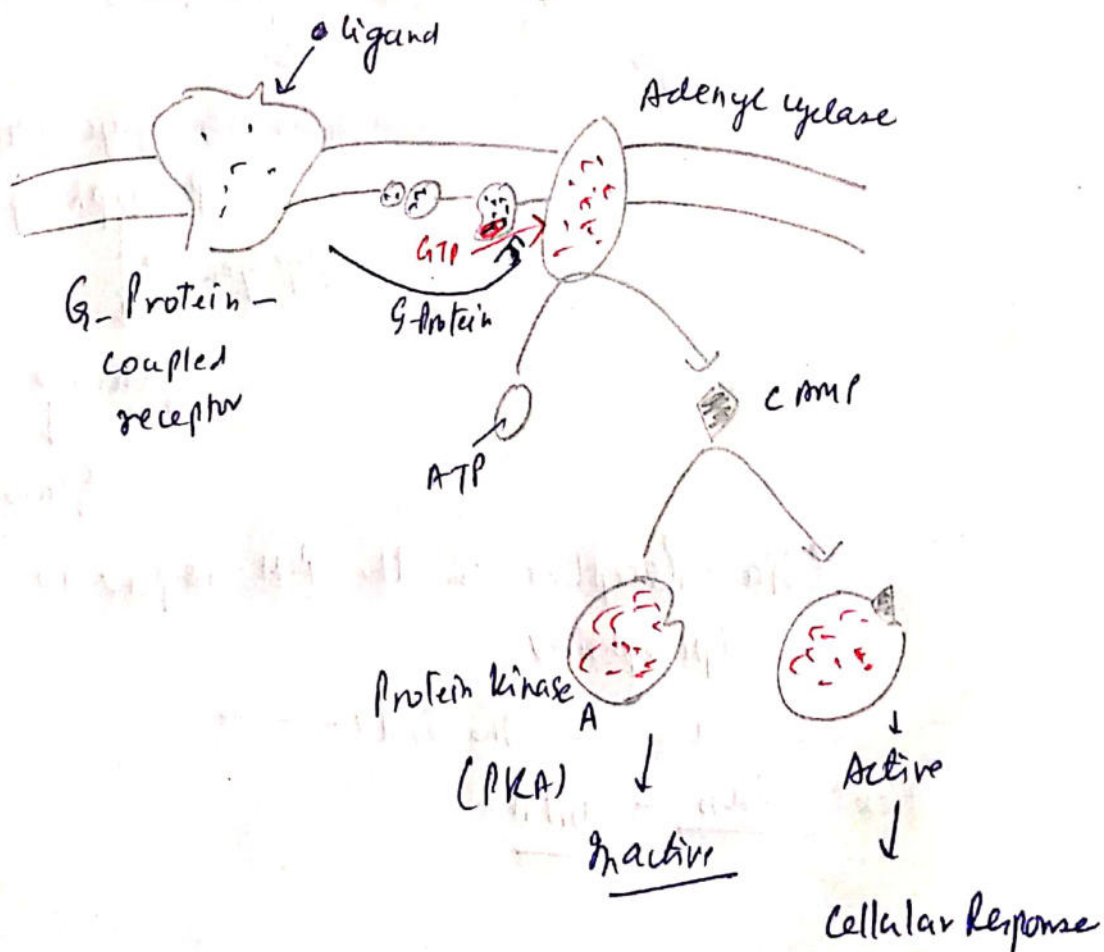 ligand
Adenyl cyclase
GTP
G-Protein
G-Protein-
coupled
receptor
ATP
CAMP
Protein kinase
A
(PKA)
Inactive
Active
Cellular Response